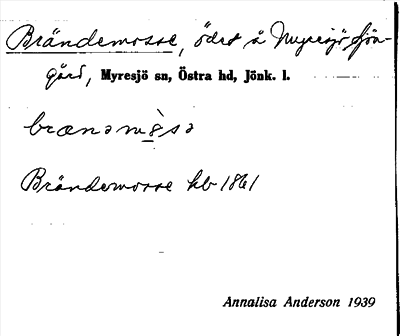 Brändemosse, ödet å Myresjö frän-
gård, Myresjö sn, Östra hd, Jönk. l.
brænəmò̤sə
Brändemosse hb 1861
Annalisa Anderson 1939